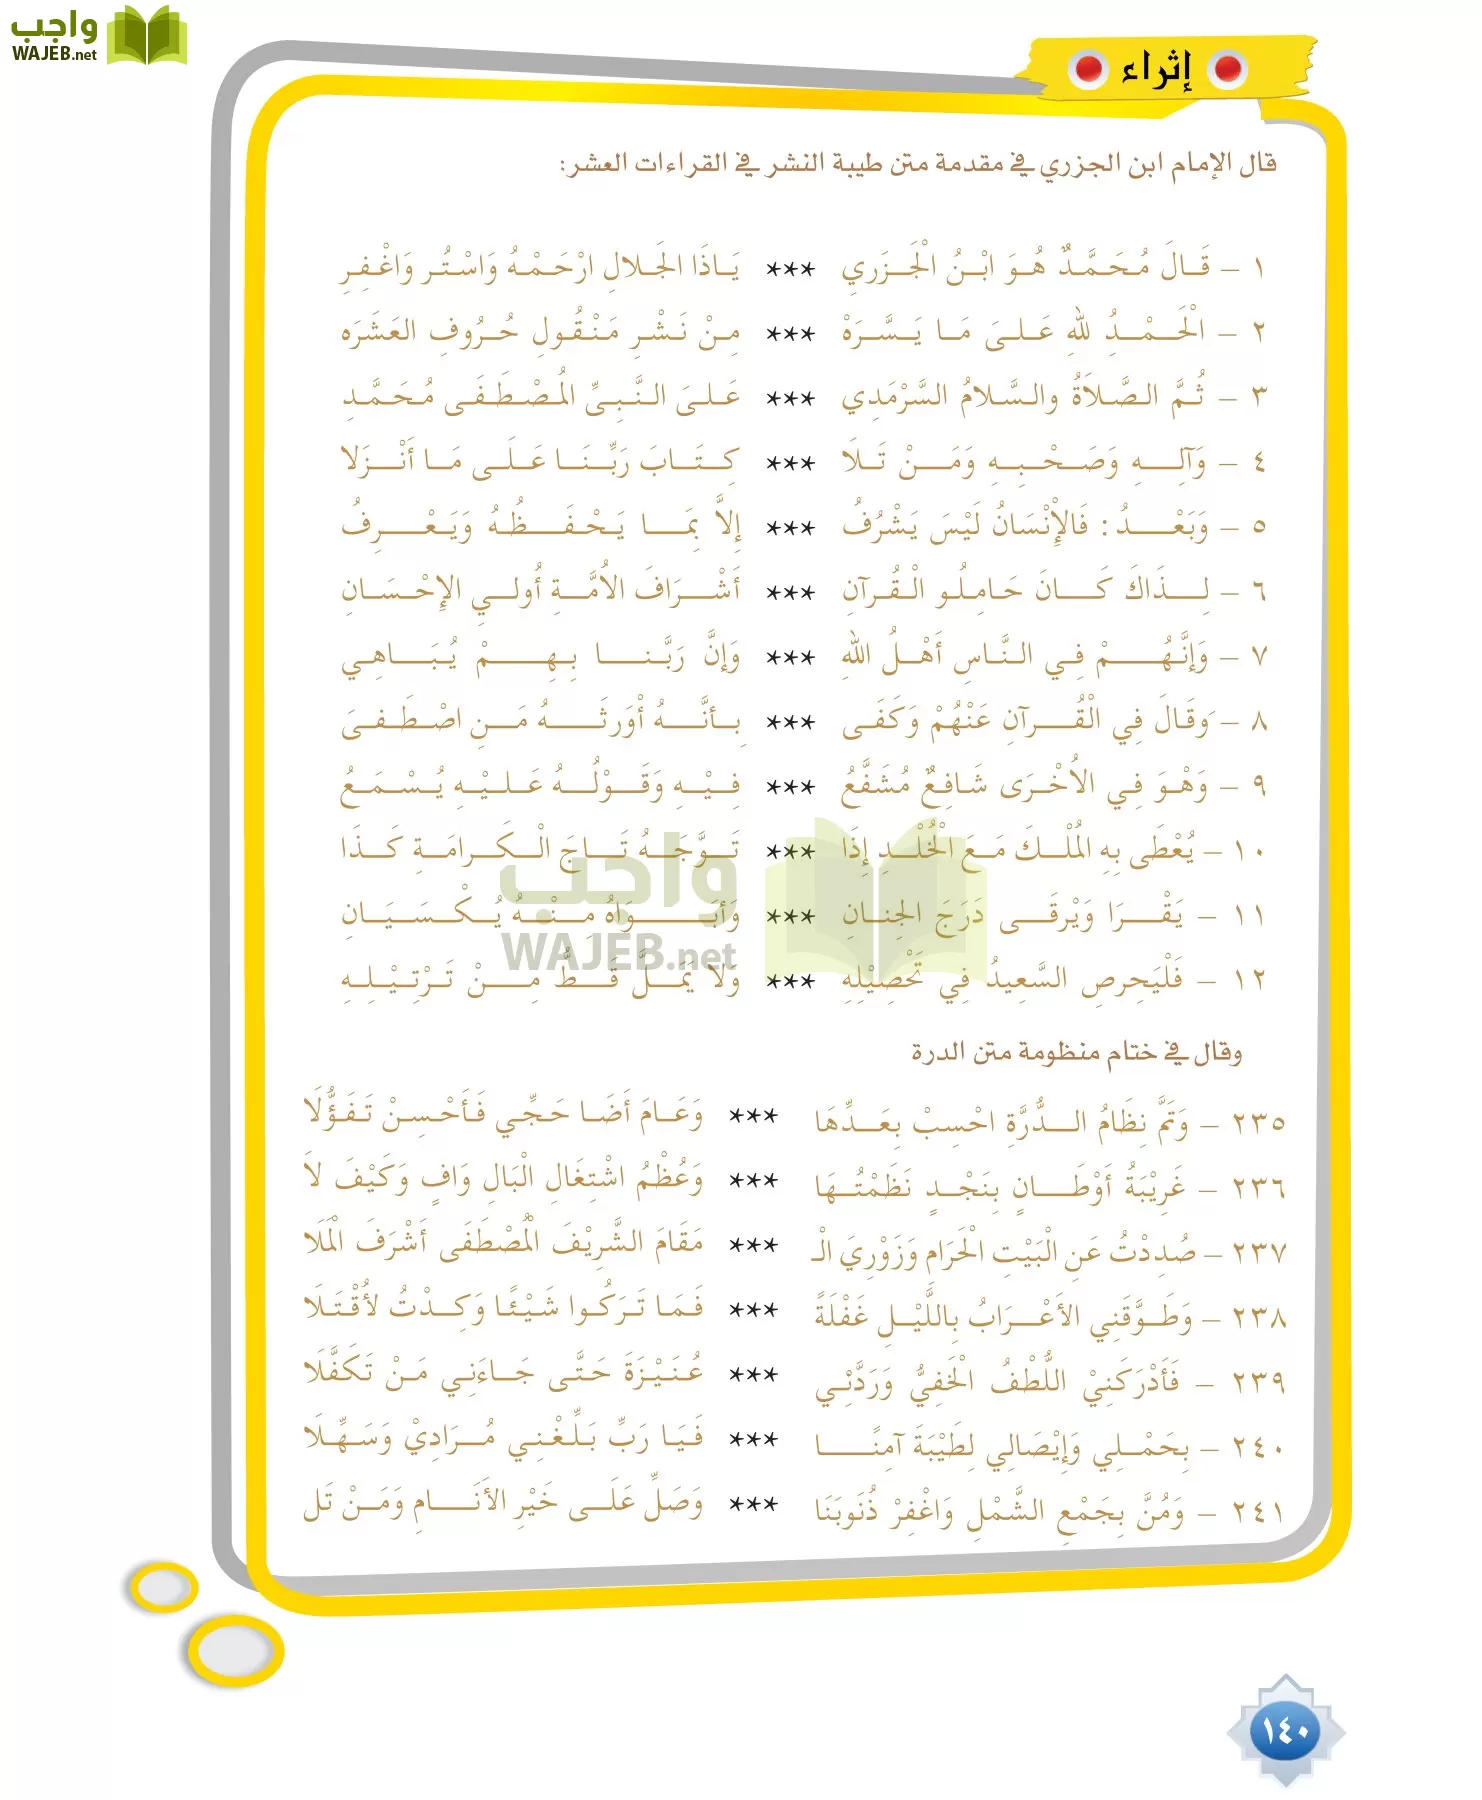 واجب
WAJEB.net
إثراء
قال الإمام ابن الجزري في مقدمة متن طيبة النشر في القراءات العشر:
١ – قَالَ مُحَمَّدٌ هُوَ ابْنُ الْجَزَرِي *** يَاذَا الجَلالِ ارْحَمْهُ وَاسْتُر وَاغْفِرِ
٢ – الْحَمْدُ للهِ عَلىَ مَا يَسَّرَهْ *** مِنْ نَشْرِ مَنْقُولِ حُرُوفِ العَشَرَه
٣ – ثُمَّ الصَّلاَةُ والسَّلامُ السَّرْمَدِي *** عَلىَ النَّبِيِّ المُصْطَفَى مُحَمَّدِ
٤ – وَآلِهِ وَصَحْبِهِ وَمَنْ تَلَا *** كِتَابَ رَبِّنَا عَلَى مَا أَنْزَلا
٥ – وَبَعْدُ : فَالإِنْسَانُ لَيْسَ يَشْرُفُ *** إِلاَّ بِمَا يَحْفَظُهُ وَيَعْرِفُ
٦ – لِذَاكَ كَانَ حَامِلُو الْقُرآنِ *** أَشْرَافَ الأُمَّةِ أُولي الإِحْسَانِ
٧ – وَإنَّهُمْ فِي النَّاسِ أَهْلُ اللهِ *** وَإنَّ رَبَّنا بِهِمْ يُبَاهِي
٨ – وَقَالَ فِي الْقُرآنِ عَنْهُمْ وَكَفَى *** بِأنَّهُ أوْرَثَهُ مَنِ اصْطَفىَ
٩ – وَهْوَ فِي الأُخْرَى شَافِعٌ مُشَفَّعُ *** فِيْهِ وَقَوْلُهُ عَلَيْهِ يُسْمَعُ
١٠ – يُعْطَى بِهِ المُلْكَ مَعَ الْخُلْدِ إِذَا *** تَوَّجَهُ تَاجَ الْكَرامَةِ كَذَا
١١ – يَقْرَا وَيْرقَى دَرَجَ الجِنانِ *** وَأبَوَاهُ مِنْهُ يُكْسَيَانِ
١٢ – فَلْيَحِرصِ السَّعِيدُ فِي تَحْصِيْلِهِ *** وَلا يَمَلَّ قَطُّ مِنْ تَرْتِيْلِهِ
واجب
WAJEB.net
وقال في ختام منظومة متن الدرة
٢٣٥ – وَتَمَّ نِظَامُ الدُّرَّةِ احْسِبْ بِعَدِّهَا *** وَعَامَ أضَا حَجِّي فَأَحْسِنْ تَفَؤُّلَا
٢٣٦ – غَرِيْبَةُ أوْطَانٍ بِنَجْدٍ نَظَمْتُهَا *** وَعُظْمُ اشْتِغَالِ الْبَالِ وَافٍ وَكَيْفَ لاَ
٢٣٧ – صُدِدْتُ عَنِ الْبَيْتِ الْحَرَامِ وَزَوْرِيَ الْـ *** مَقَامَ الشَّرِيْفَ الْمُصْطَفَى أشْرَفَ الْمَلَا
٢٣٨ – وَطَوَّقَنِي الأَعْرَابُ بِاللَّيْلِ غَفْلَةً *** فَمَا تَرَكُوا شَيْئًا وَكِدْتُ لأُقْتَلَا
٢٣٩ – فَأَدْرَكَنِيْ اللُّطْفُ الْخَفِيُّ وَرَدَّنِي *** عُنَيْزَةَ حَتَّى جَاءَنِي مَنْ تَكَفَّلَا
٢٤٠ – بِحَمْلِي وَإِيْصَالِي لِطَيْبَةَ آمِنًا *** فَيَا رَبِّ بَلِّغْنِي مُرَادِيْ وَسَهِّلَا
٢٤١ – وَمُنَّ بِجَمْعِ الشَّمْلِ وَاغْفِرْ ذُنَوبَنَا *** وَصَلِّ عَلَى خَيْرِ الأَنَامِ وَمَنْ تَل
١٤٠